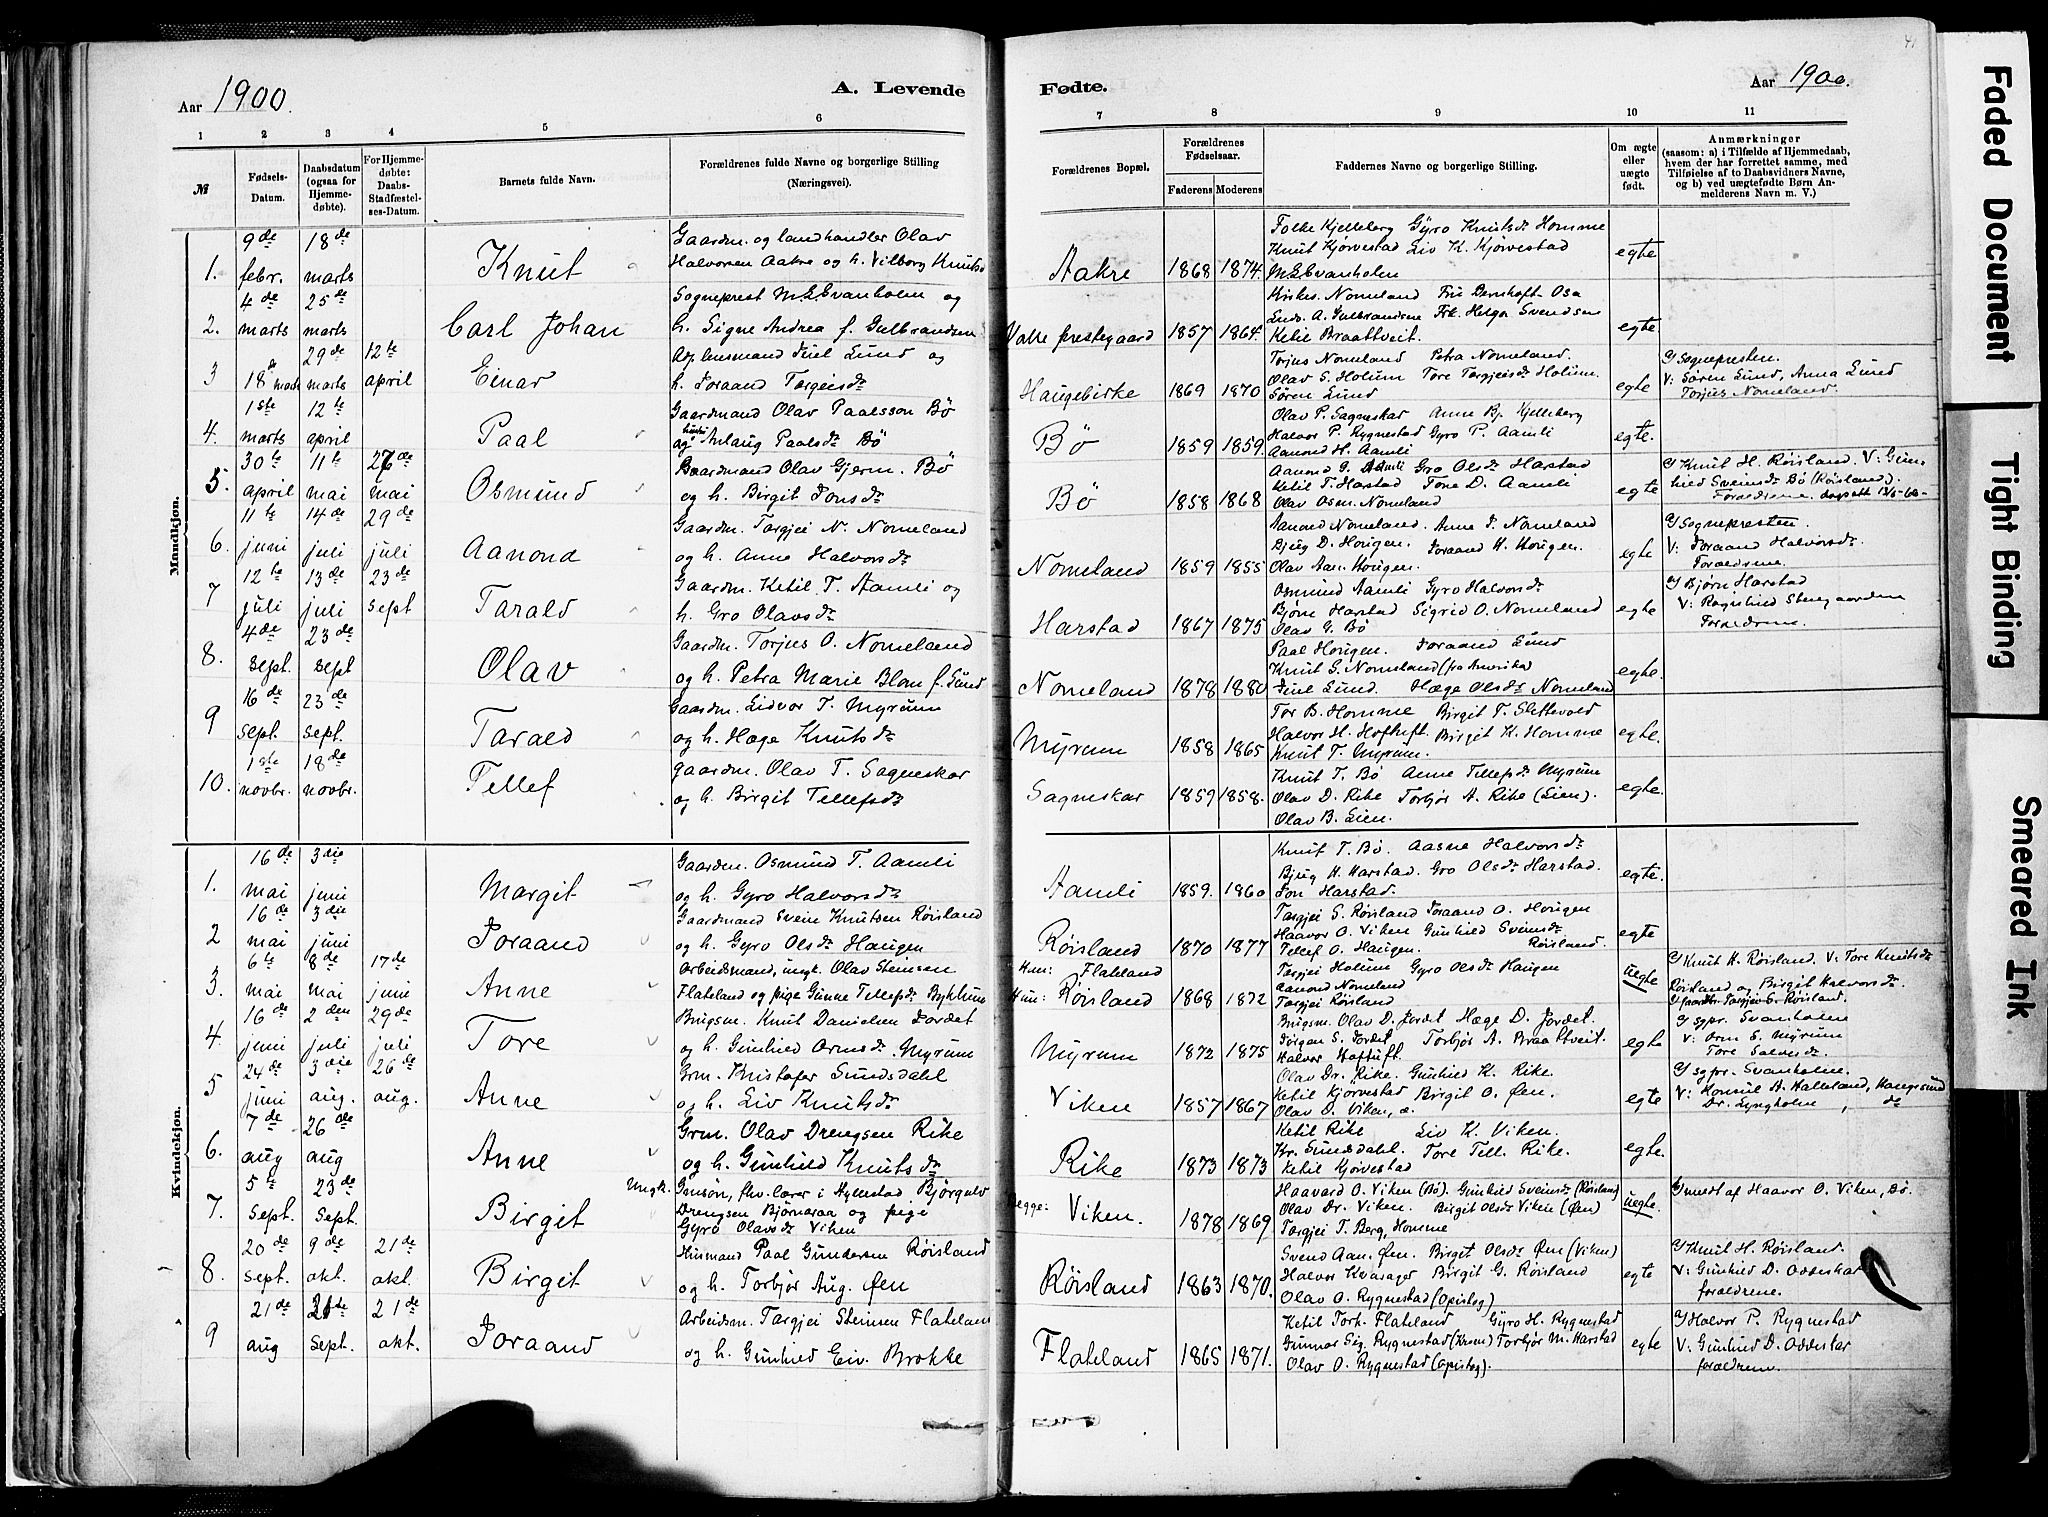 Aar 1900.
A. Levende
1 2 3 4 5 6
№
Fødsels-
Datum.
Daabsdatum
(ogsaa for
Hjemme-
døbte).
For Hjemme-
døbte:
Daabs-
Stadfæstel-
ses-Datum.
Barnets fulde Navn.
Forældrenes fulde Navne og borgerlige Stilling
(Næringsvei).
Mandkjøn.
9de 18de Gaardm. og landhandler Olav
1. febr. marts Knut Halvorsen Aakre og h. Vilborg Knutsd
4de 25de Sogneprest M.E. Svanholm og
2. marts marts Carl Johan h. Signe Andrea f. Gulbrandsen
29de 12te Juel Lund og
3 18de marts marts april Einar h. Joraand Targeisdr
1ste 12te Gaardmand Olav Paalsson Bø
4. marts april Paal og hustru Anlaug Paalsdr Bø
30te 11te 26de Gaardmand Olav Gjerm. Bø
5. april mai mai Osmund og h. Birgit Jonsdr
11te 14de 29de Gaardm. Targjei N. Nomeland
6. juni juli juli Aanond og h. Anne Halvorsdr
12te 13de 23de Gaardm. Ketil T. Aamli og
7 juli juli sept Tarald h. Gro Olavsdr
4de 23de Gaardm. Torjus O. Nomeland
8. sept. sept Olav og h. Petra Marie Blom f. Lund
16de 23de Gaardm. Eidvor T. Myrum
9 sept. sept. Tarald og h. Hæge Knutsdr
1ste 18de gaardm. Olav T. Sagneskar
10. novbr. novbr. Tellef og h. Birgit Tellefsdr
Kvindekjøn.
16de 3die Gaardm. Osmund T. Aamli
1. mai juni Margit og h. Gyro Halvorsdr
16de 3die Gaardmand Svein Knutsen Røisland
2 mai juni Joraand og h. Gyro Olsdr Haugen
6te 8de 17de Arbeidsmand, ungk. Olav Steinsen
3. mai mai juni Anne Flateland og pige Gunne Tellefsdr Bykhun
16de 2den 29de Brugsm. Knut Danielsen Jordet
4. juni juli juli Tore og h. Gunhild Ormsdr Myrum
24de 3die 26de Grm. Kristofer Sundsdahl
5 juni aug. aug. Anne og h. Liv Knutsdr
7de 26de Grm. Olav Drengsen Rike
6. aug aug Anne og h. Gunhild Knutsdr
5te 23de Ungk. Gmsøn, fhv. lærer i Hyllestad Bjørgulv
7. sept. sept. Birgit Drengsen Bjørnaraa og pige
Gyro Olavsdr Viken
20de 9de 21de Husmand Paal Gundersen Røisland
8. sept. okt. okt. Birgit og h. Torbjør Aug. Øen
21de 21de 21de Arbeidsm. Targjei Steinsen Flateland
9 aug sept. okt. Joraand og h. Gunhild Eiv. Brokke
Fødte.
Aar 1900.
7 8 9 10 11
Forældrenes Bopæl.
Forældrenes
Fødselsaar.
Faderens Moderens
Faddernes Navne og borgerlige Stilling.
Om ægte
eller
uægte
født.
Anmærkninger
(saasom: a) i Tilfælde af Hjemmedaab,
hvem der har forrettet samme, med
Tilføielse af to Daabsvidners Navne,
og b) ved uægtefødte Børn An-
melderens Navn m. V.)
Folke Kjelleberg Gyro Knutsdr Homme
Knut Kjørvestad Liv K. Kjørvestad
Aakre 1868 1874. M.E. Svanholm egte
Kirkes. Nomeland Fru Bernhoft Osa
Lads. A. Gulbrandsen Frk. Helga Svendsen
Valle prestegaard 1857 1864. Ketil Braattveit. egte
Torjus Nomeland Petra Nomeland.
Olav S. Holum Tore Targjeisdr Holum.
Haugebirke 1869 1870 Søren Lund egte
a/ Sognepresten.
V: Søren Lund, Anna Lund
Torjus Nomeland.
Olav P. Sagneskar Anne Bj. Kjelleberg
Halvor P. Rygnestad Gyro P. Aamli
Bø 1859 1859. Aanond H. Aamli egte.
Aanond G. Aamli Gro Olsdr Harstad
Ketil T. Harstad Tone D. Aamli
Bø 1858 1868 Olav Osm. Nomeland egte
a/ Knut H. Røisland. V: Gun-
hild Sveinsdr Bø (Røisland).
Foraldrene.
Aanond Nomeland. Anne J. Nomeland
Bjug D. Hougen. Joraand H. Hougen.
Nomeland 1859 1855 Olav Aan. Hougen. egte
a/ Sognepresten.
V: Joraand Halvorsdr.
Foraldrene.
Osmund Aamli Gyro Halvorsdr
Bjørn Harstad Sigrid O. Nomeland
Harstad 1867 1875 Olav G. Bø egte
a/ Bjørn Harstad
V: Ragnhild Stengaarden
Foraldrene.
Paal Hougen. Joraand Lund
Knut G. Nomeland (fra Amerika)
Nomeland 1878 1880 Juel Lund. Hæge Olsdr Nomeland egte.
Tor B. Homme Birgit T. Slettevold
Halvor H. Hoftuft. Birgit K. Homme
Myrum 1858 1865 Knut T. Myrum. egte.
Knut T. Bø Anne Tellefsdr Myrum
Sagneskar 1859 1858. Olav D. Rike Torbjør A. Rike (Lien). egte.
Olav B. Lien.
Knut T. Bø. Aasne Halvorsdr
Bjug H. Harstad. Gro Olsdr Harstad.
Aamli 1859. 1860 Jon Harstad. egte.
Targjei S. Røisland Joraand O. Hougen
Haavor O. Viken Gunhild Sveinsdr
Røisland 1870 1877 Tellef O. Haugen. Røisland. egte
Han: Flateland Targjei Holum Gyro Olsdr Haugen
Aanond Nomeland
Hun: Røisland 1868 1872 Targjei Røisland uegte
a/ Knut H. Røisland. V: Tore Knutsdr
Røisland og Birgit Halvorsdr.
Targjei S. Røisland.
Brugsm. Olav D. Jordet Hæge D. Jordet.
Jørgen S. Jordet Torbjør A. Braattveit.
Myrum 1872 1875 Halvor Hoftuft. egte
a/ sgpr. Svanholm
V: Orm E. Myrum
Tore Salvesdr.
Olav Dr. Rike. Gunhild K. Rike.
Ketil Kjørvestad Birgit O. Øen.
Viken 1857 1867 Olav O. Viken, æ. egte
a/ sgpr. Svanholm.
V: Halleland, Haugesund
Dr. Lyngholm, do
Ketil Rike Liv K. Viken.
Kr. Sundsdahl. Tore Tell. Rike.
Rike 1873 1873 Ketil Kjørvestad egte.
Haavard O. Viken (Bø). Gunhild Sveinsdr (Røisland)
Olav Dr. Viken. Birgit Olsdr Viken (Øen)
Begge: Viken. 1878 1869 Targjei T. Berg, Homme uegte.
Gmeldt af Haavor O. Viken, Bø.
Svend Aan. Øen. Birgit Olsdr Øen (Viken)
Halvor Kvasager Birgit G. Røisland
Røisland 1863 1870. Olav O. Rygnestad (Opistog) egte
a/ Knut H. Røisland.
V: Gunhild D. Oddeskar
foraldrene.
Ketil Tork. Flateland Gyro H. Rygnestad
Gunnar Sig. Rygnestad Torbjør M. Harstad
Flateland 1865 1871. Olav O. Rygnestad (Opistog). egte
a/ Halvor P. Rygnestad
V: Gunhild D. Oddeskar
foraldrene.
Faded Document
Tight Binding
Smeared Ink